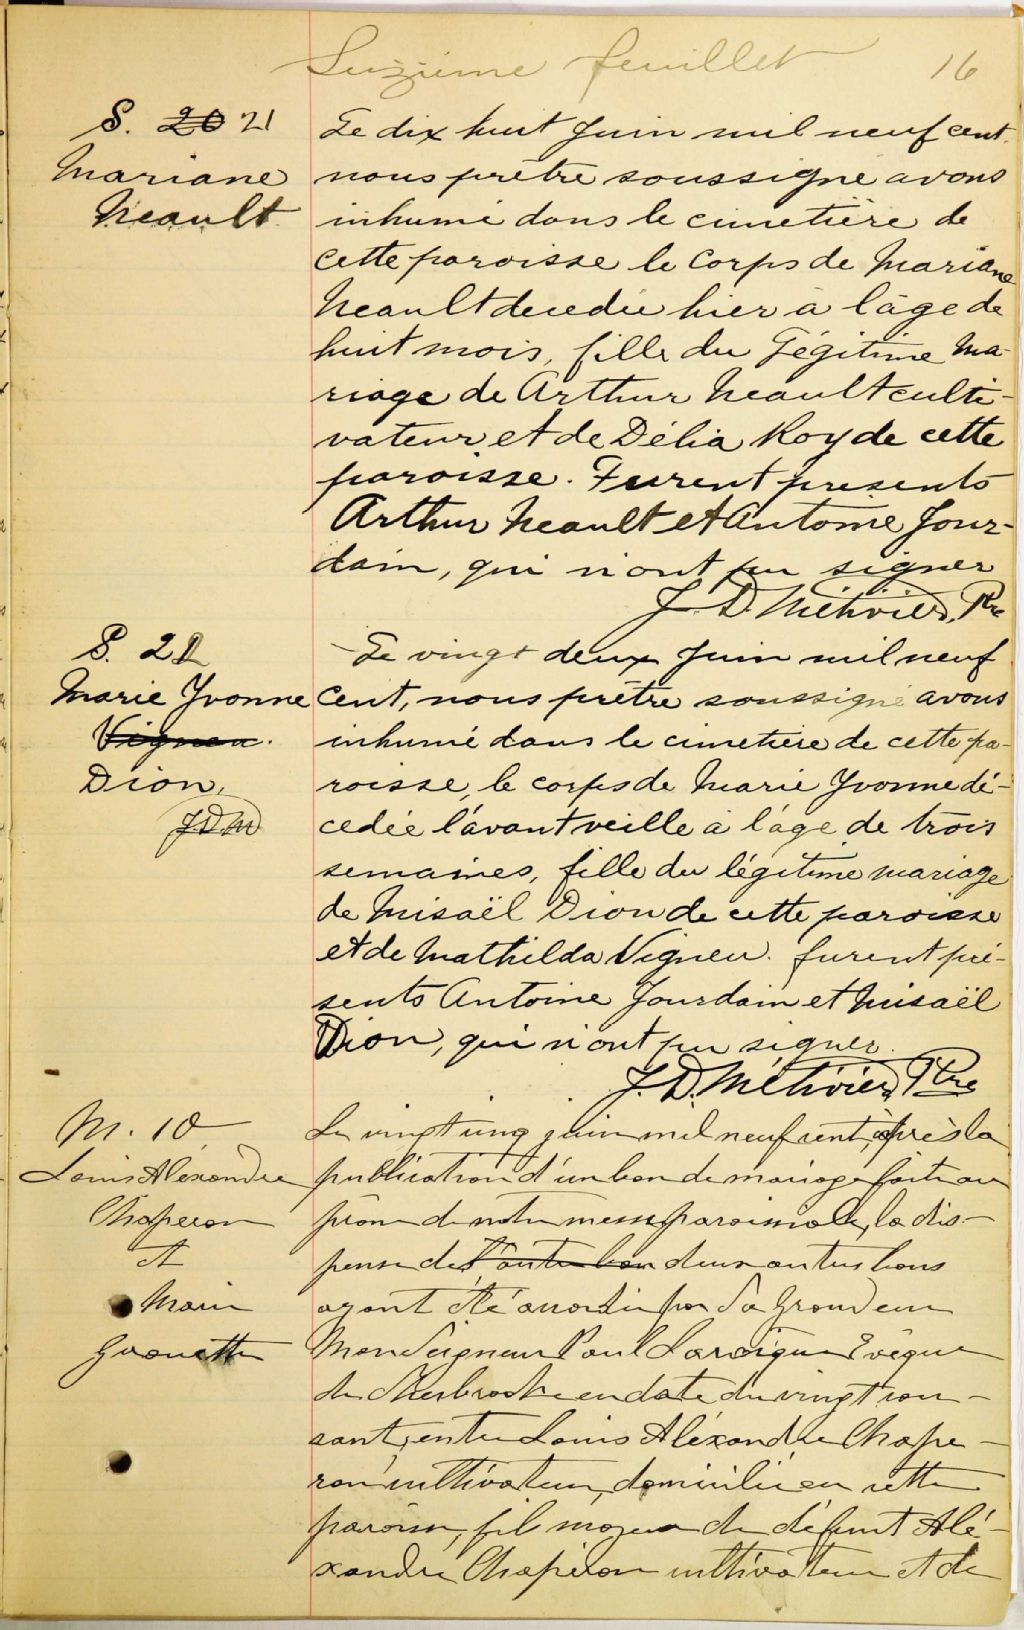 Suzième feuillet 16
S. 20 21
Mariane
Neault
Le dix huit Juin mil neuf cent
nous prêtre soussigné avons
inhumé dans le cimetière de
cette paroisse le corps de Mariane
Neault decedée hier à l'âge de
huit mois, fille du Légitime Ma-
riage de Arthur Neault culti-
vateur et de Délia Roy de cette
paroisse. Furent présents
Arthur Neault et Antoine Jour-
dain, qui n'ont pu signer
J. D. Méthivier, Ptre
S. 22
Marie Yvonne
Vigneu.
Dion,
JDM
Le vingt deux Juin mil neuf
cent, nous prêtre soussigné avons
inhumé dans le cimetière de cette pa-
roisse, le corps de Marie Yvonne dé-
cedée l'avant veille à l'âge de trois
semaines, fille du légitime mariage
de Misaël Dion de cette paroisse
et de Mathilda Vigneu. furent pré-
sents Antoine Jourdain et Misaël
Dion, qui n'ont pu signer.
J. D. Méthivier, Ptre
M. 10
Louis Aléxandre
Chaperon
et
Marie
Le vingt un juin mil neuf cent, après la
publication d'un ban de mariage faite au
prône de notre messe paroissiale, la dis-
pense des l'autre ban deux autres bans
ayant été accordée par Sa Grandeur
Monseigneur Paul Larocque Evêque
de Sherbrooke en date du vingt cou-
rant, entre Louis Aléxandre Chape-
ron cultivateur, domicilié en cette
paroisse, fils majeur de défunt Alé-
xandre Chapéron cultivateur et de